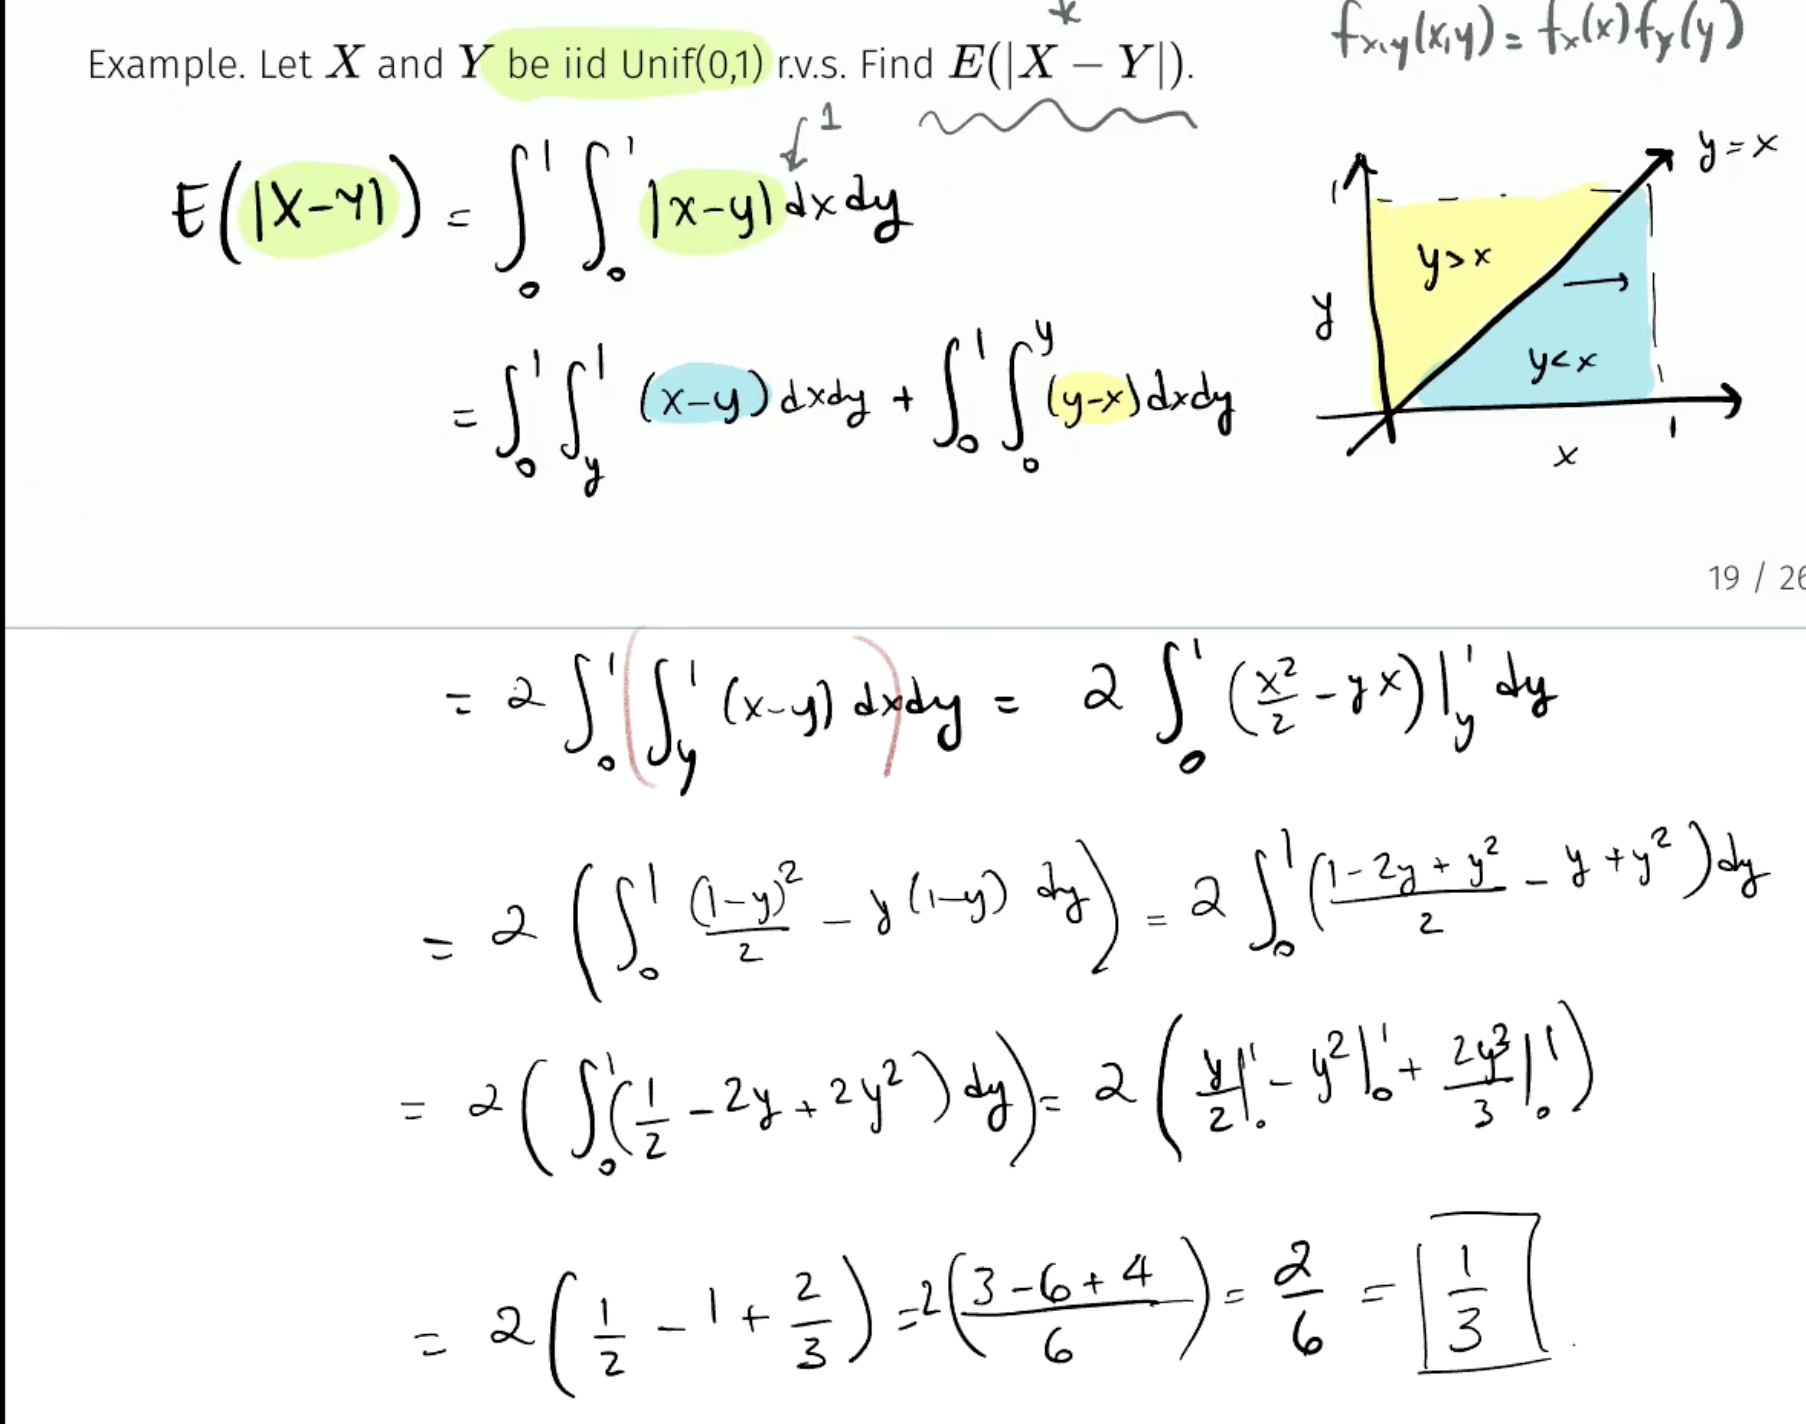 *
Example. Let X and Y be iid Unif(0,1) r.v.s. Find E(|X − Y|).
f_{X,Y}(x,y) = f_X(x) f_Y(y)
1
E(|X-Y|) = ∫_0^1 ∫_0^1 |x-y| dx dy
= ∫_0^1 ∫_y^1 (x-y) dxdy + ∫_0^1 ∫_0^y (y-x) dxdy
y=x
1
y>x
y
y<x
1
x
19 / 26
= 2 ∫_0^1 (∫_y^1 (x-y) dx) dy = 2 ∫_0^1 (x²/2 - yx)|_y^1 dy
= 2 (∫_0^1 (1-y)²/2 - y(1-y) dy) = 2 ∫_0^1 ((1-2y+y²)/2 - y + y²) dy
= 2 (∫_0^1 (1/2 - 2y + 2y²) dy) = 2 (y/2|_0^1 - y²|_0^1 + 2y³/3|_0^1)
= 2 (1/2 - 1 + 2/3) = 2 ((3-6+4)/6) = 2/6 = 1/3